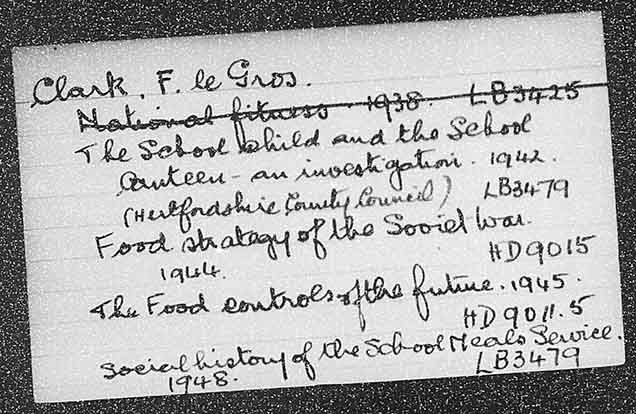 Clark, F. le Gros.
National fitness 1938. LB3425
The School Child and the School
Canteen - an investigation. 1942.
(Hertfordshire County Council) LB3479
Food strategy of the Soviet War.
1944. HD9015
The Food controls of the future. 1945.
HD9011.5
Social history of the School Meals Service.
1948. LB3479